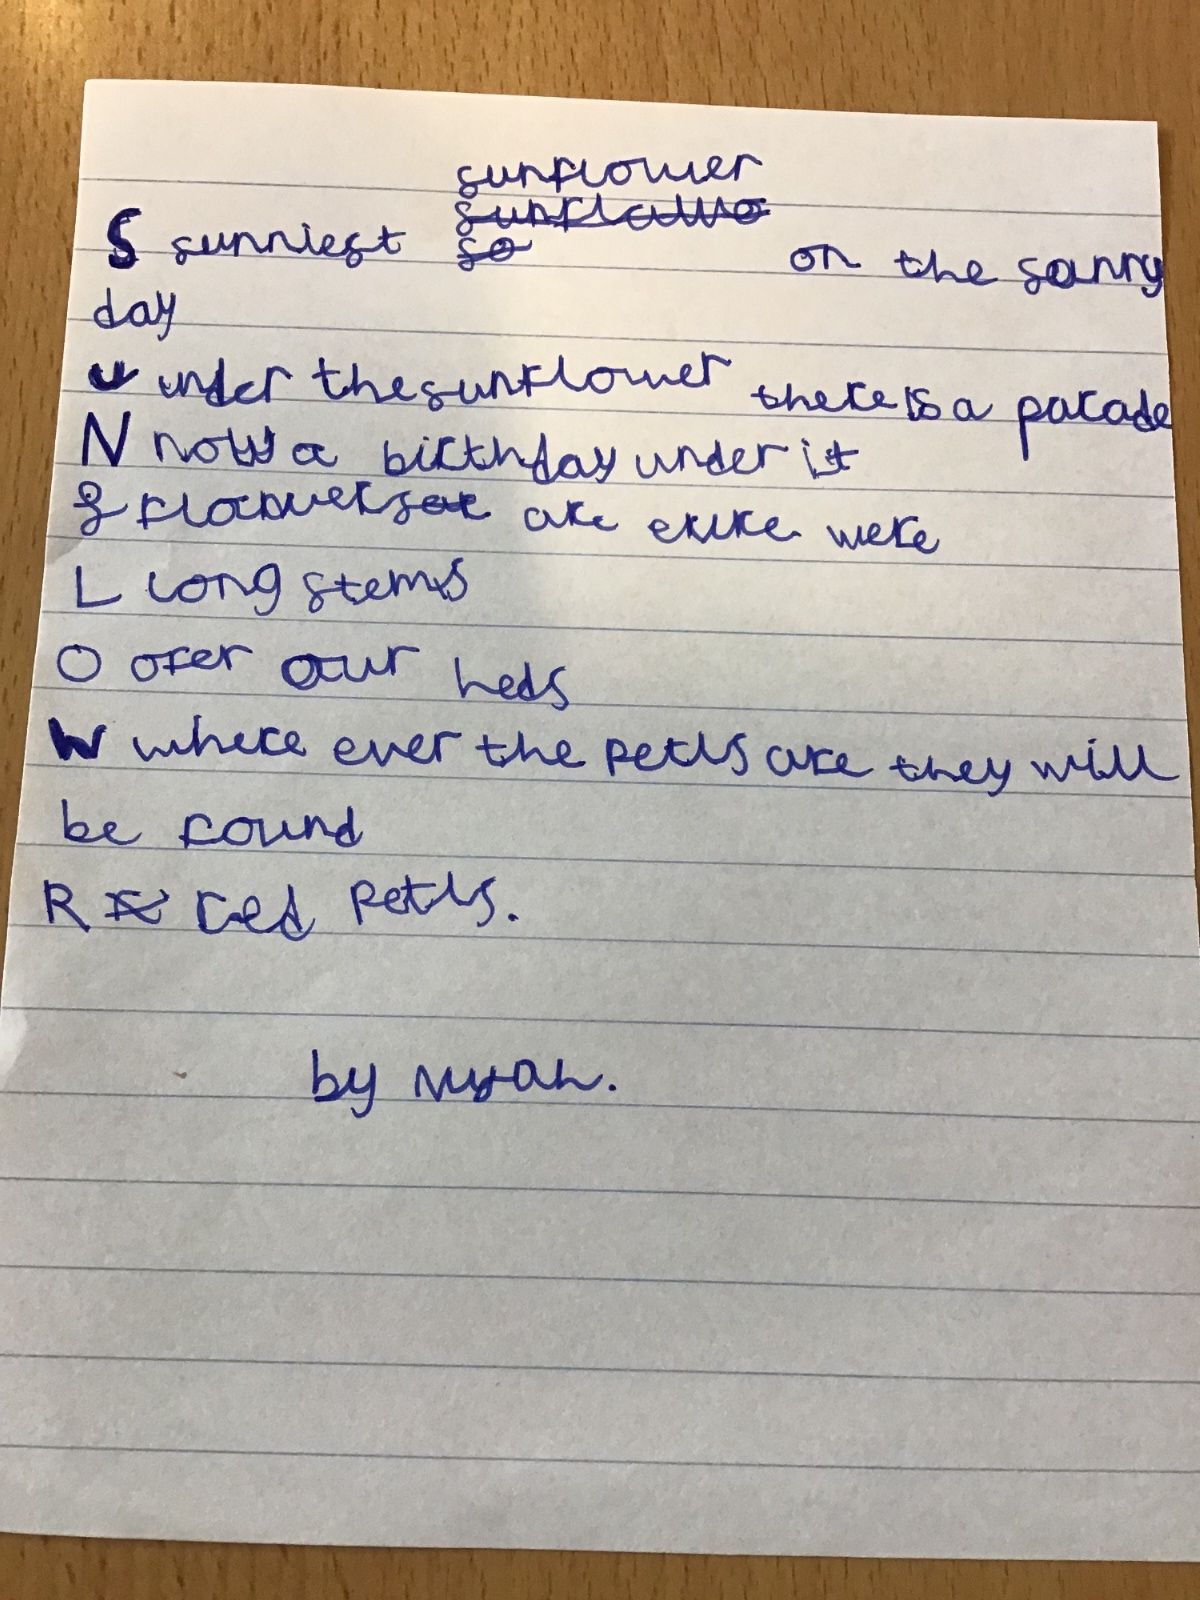 sunflower
S sunniest on the sanny
day
U under the sunflower there is a parade
N now a birthday under it
F flowers are erire were
L long stems
O ofer our heds
W where ever the petls are they will
be found
R red petls.
by nyah.